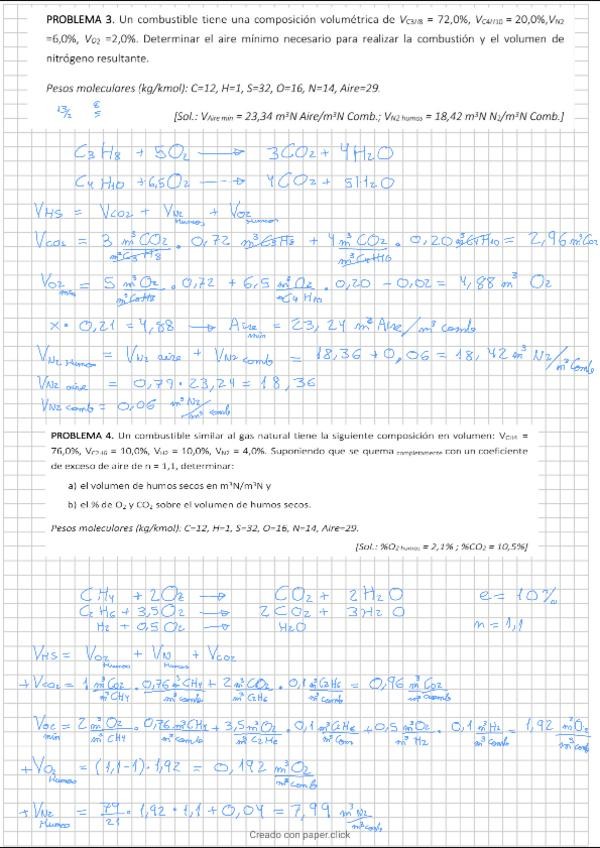 PROBLEMA 3. Un combustible tiene una composición volumétrica de VC3H8 = 72,0%, VC4H10 = 20,0%,VN2
=6,0%, VO2 =2,0%. Determinar el aire mínimo necesario para realizar la combustión y el volumen de
nitrógeno resultante.
Pesos moleculares (kg/kmol): C=12, H=1, S=32, O=16, N=14, Aire=29.
13/2
[Sol.: VAire min = 23,34 m³N Aire/m³N Comb.; VN2 humos = 18,42 m³N N2/m³N Comb.]
C3H8 + 5O2 → 3CO2 + 4H2O
C4H10 + 6,5O2 → 4CO2 + 5H2O
VHS = VCO2 + VN2 Humos + VO2 Humos
VCO2 = 3 m³CO2/m³C3H8 · 0,72 m³C3H8 + 4 m³CO2/m³C4H10 · 0,20 m³C4H10 = 2,96 m³CO2
VO2 min = 5 m³O2/m³C3H8 · 0,72 + 6,5 m³O2/C4H10 · 0,20 - 0,02 = 4,88 m³ O2
x · 0,21 = 4,88 → Aire min = 23,24 m³ Aire/m³ comb
VN2 Humos = VN2 aire + VN2 comb = 18,36 + 0,06 = 18,42 m³ N2/m³ Comb
VN2 aire = 0,79 · 23,24 = 18,36
VN2 comb = 0,06 m³ N2/m³ comb
PROBLEMA 4. Un combustible similar al gas natural tiene la siguiente composición en volumen: VCH4 =
76,0%, VC2H6 = 10,0%, VH2 = 10,0%, VN2 = 4,0%. Suponiendo que se quema completamente con un coeficiente
de exceso de aire de n = 1,1, determinar:
a) el volumen de humos secos en m³N/m³N y
b) el % de O2 y CO2 sobre el volumen de humos secos.
Pesos moleculares (kg/kmol): C=12, H=1, S=32, O=16, N=14, Aire=29.
[Sol.: %O2 humos = 2,1% ; %CO2 = 10,5%]
CH4 + 2O2 → CO2 + 2H2O e = 10%
C2H6 + 3,5O2 → 2CO2 + 3H2O
H2 + 0,5O2 → H2O n = 1,1
VHS = VO2 Humos + VN Humos + VCO2
+VCO2 = 1 m³CO2/m³CH4 · 0,76 m³CH4/m³comb + 2 m³CO2/m³C2H6 · 0,1 m³C2H6/m³comb = 0,96 m³CO2/m³comb
VO2 min = 2 m³O2/m³CH4 · 0,76 m³CH4/m³comb + 3,5 m³O2/m³C2H6 · 0,1 m³C2H6/m³Com + 0,5 m³O2/m³H2 · 0,1 m³H2/m³comb = 1,92 m³O2/m³comb
+VO2 Humos = (1,1-1) · 1,92 = 0,192 m³O2/m³comb
+VN2 Humos = 79/21 · 1,92 · 1,1 + 0,04 = 7,99 m³N2/m³comb
Creado con paper.click